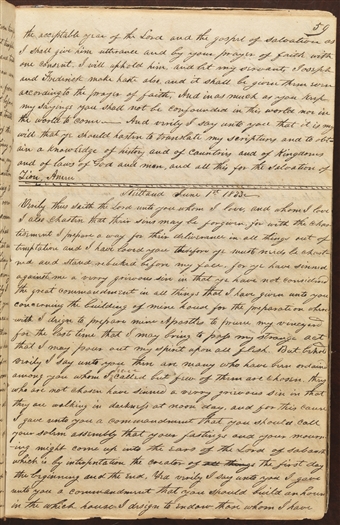 59
the acceptable year of the Lord and the gospel of salvation as
I shall give him utterance and by your prayer of faith with
one consent I will uphold him and let my servants Joseph
and Frederick make haste also and it shall be given them even
according to the prayer of faith And in as much as you keep
my sayings you shall not be confounded in this world nor in
the world to come And verily I say unto you that it is my
will that ye should hasten to translate my scriptures and to obt
ain a knowledge of history and of countries and of kingdoms
and of laws of God and man, and all this for the salvation of
Zion Amen
Kirtland June 1st 1833
Verily thus saith the Lord unto you whom I love, and whom I love
I also chasten that their sins may be forgiven for with the chas
tisement I prepare a way for their deliverance in all things out of
temptation and I have loved you therefore ye must needs be chaste
ned and stand rebuked before my face, for ye have sinned
against me a very grievous sin in that ye have not considered
the great commandment in all things that I have given unto you
concerning the building of mine house for the preparation where
with I design to prepare mine Apostles to prune my vineyard
for the last time that I may bring to pass my strange act
that I may pour out my spirit upon all flesh But behold
verily I say unto you there are many who have been ordained
among you whom I called but few of them are chosen they
who are not chosen have sinned a very grievous sin in that
they are walking in darkness at noon day, and for this cause
I gave unto you a commandment that you should call
your solem assembly that your fastings and your mourn
ing might come up into the ears of the Lord of sabaoth
which is by interpretation the creator of all things the first day
the beginning and the end. Yea verily I say unto you I gave
unto you a commandment that you should build an house
in the which house I design to endow those whom I have